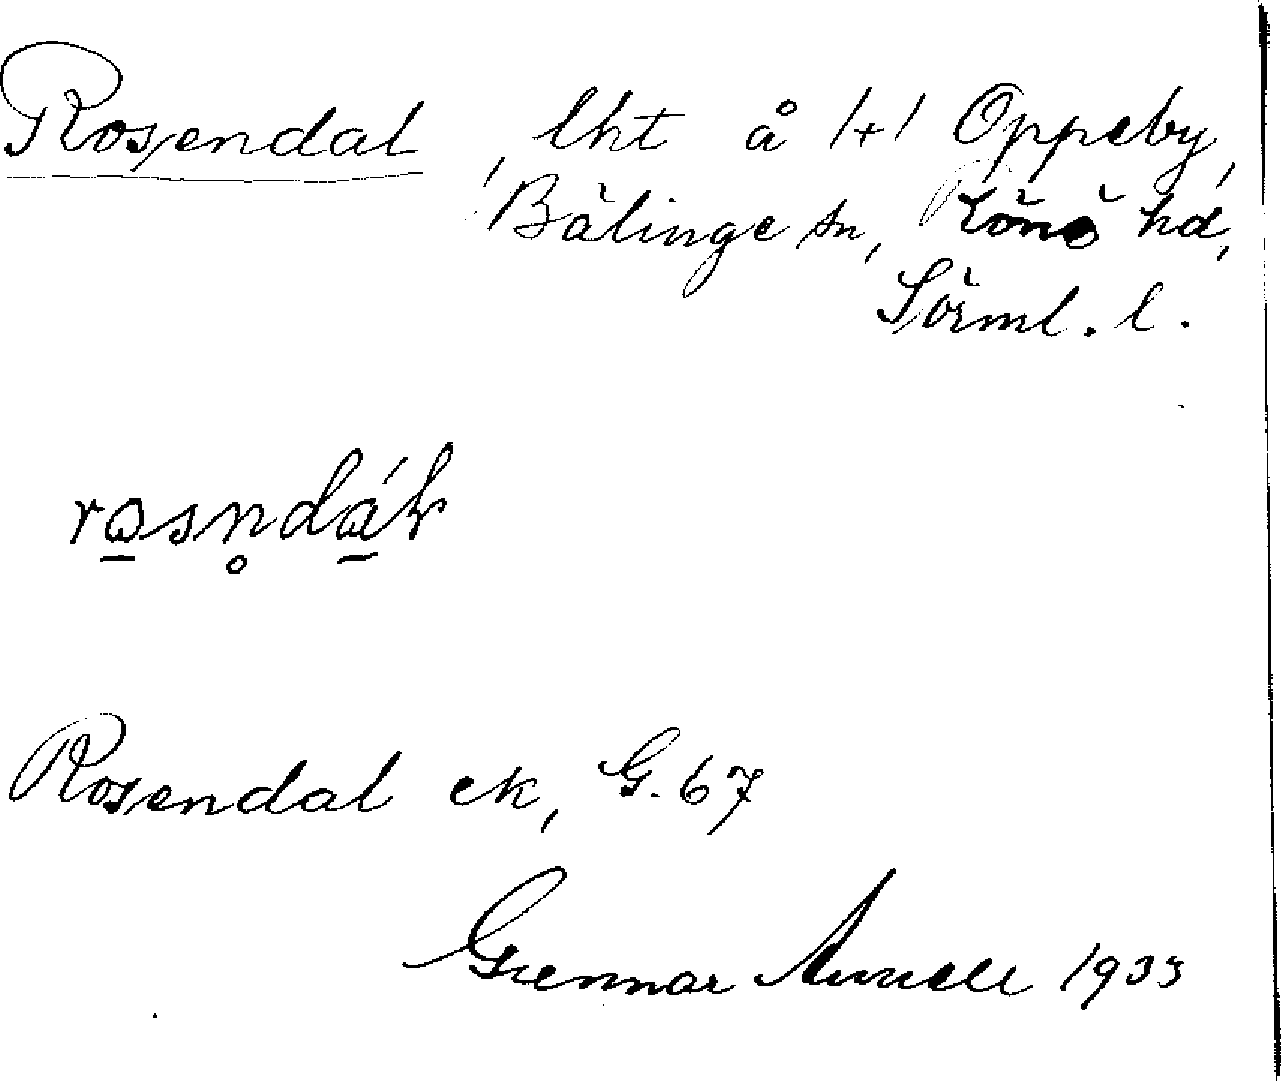 Rosendal, lht å 1+1 Oppeby,
Bälinge sn, Rönö hd,
Sörml. l.
rosn̥dáɫ
Rosendal ek, G. 67
Gunnar Annell 1933